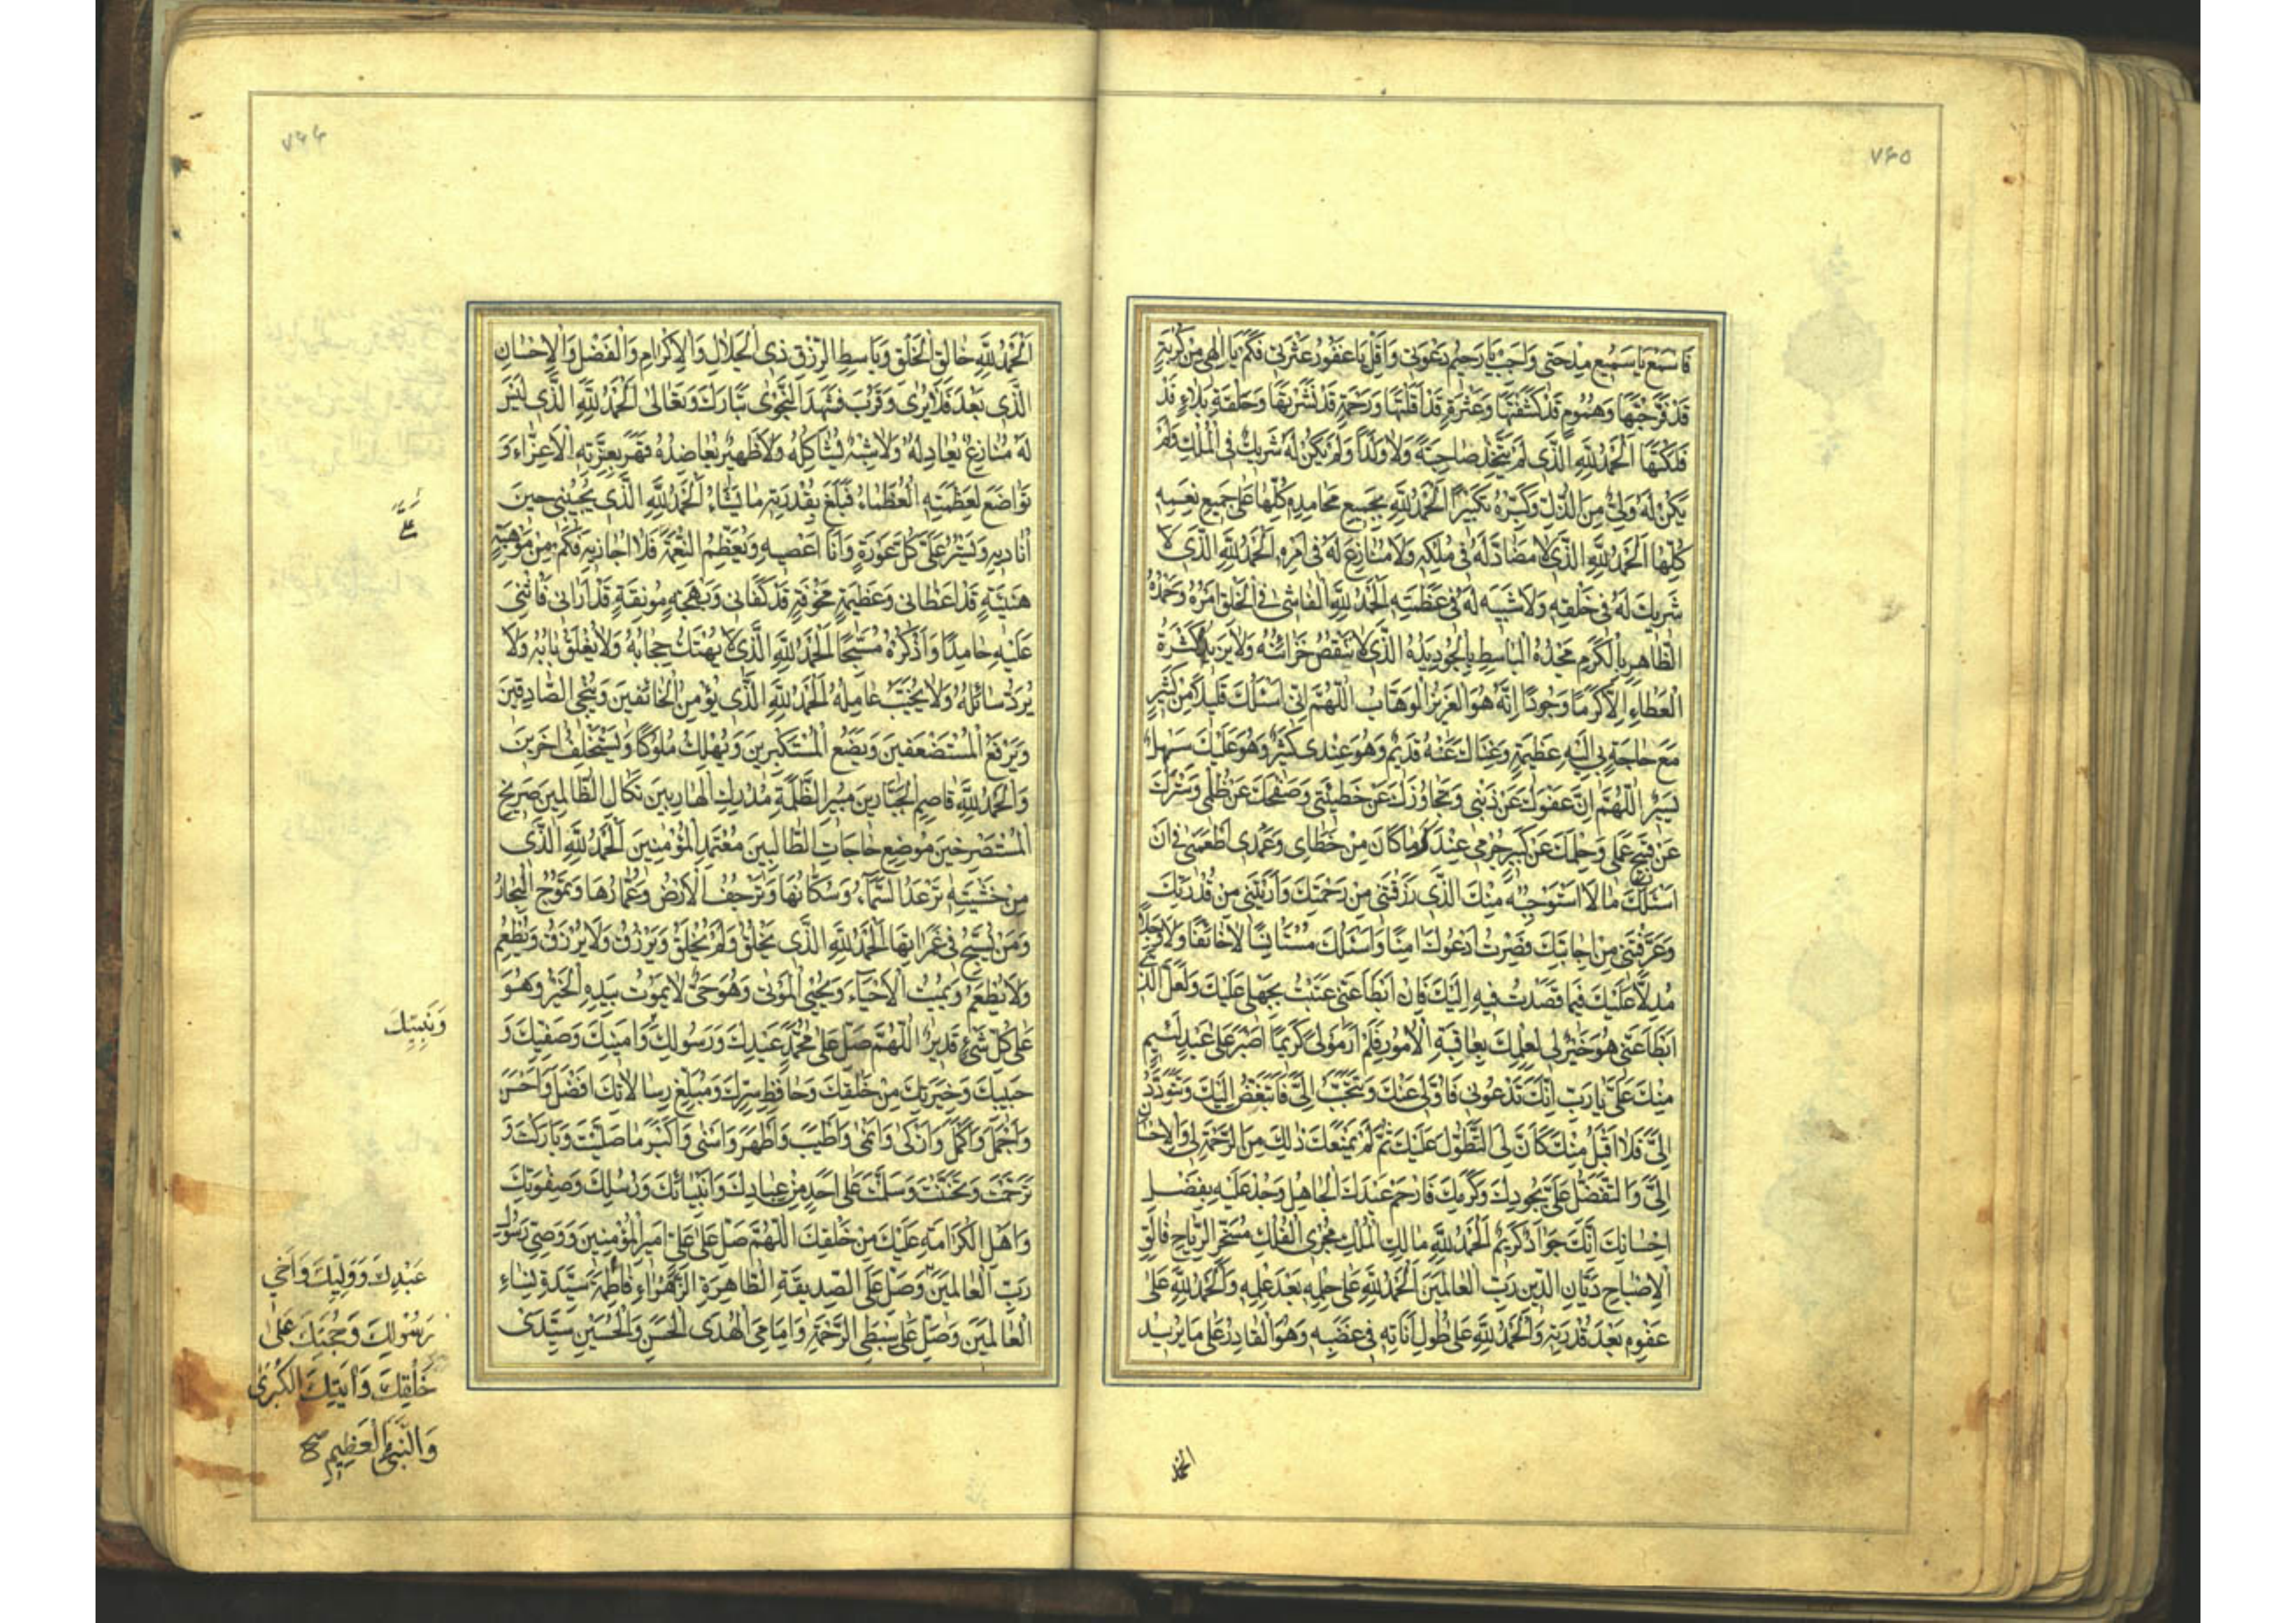 ٧٤٥
فَاسْمَعْ يا سَميعُ مِدْحَتي وَاَجِبْ يا رَحيمُ دَعْوَتي وَاَقِلْ يا غَفُورُ عَثْرَتي فَكَمْ يا اِلهي مِنْ كُرْبَةٍ
قَدْ فَرَّجْتَها وَهُمُومٍ قَدْ كَشَفْتَها وَعَثْرَةٍ قَدْ اَقَلْتَها وَرَحْمَةٍ قَدْ نَشَرْتَها وَحَلْقَةِ بَلاءٍ قَدْ
فَكَكْتَها اَلْحَمْدُ لِلّهِ الَّذي لَمْ يَتَّخِذْ صاحِبَةً وَلا وَلَداً وَلَمْ يَكُنْ لَهُ شَريكٌ فِي الْمُلْكِ وَلَمْ
يَكُنْ لَهُ وَلِيٌّ مِنَ الذُّلِّ وَكَبِّرْهُ تَكْبيراً اَلْحَمْدُ لِلّهِ بِجَميعِ مَحامِدِهِ كُلِّها عَلى جَميعِ نِعَمِهِ
كُلِّها اَلْحَمْدُ لِلّهِ الَّذي لا مُضادَّ لَهُ في مُلْكِهِ وَلا مُنازِعَ لَهُ في اَمْرِهِ اَلْحَمْدُ لِلّهِ الَّذي لا
شَريكَ لَهُ في خَلْقِهِ وَلا شَبيهَ لَهُ في عَظَمَتِهِ اَلْحَمْدُ لِلّهِ الْفاشي فِي الْخَلْقِ اَمْرُهُ وَحَمْدُهُ
الظّاهِرِ بِالْكَرَمِ مَجْدُهُ الْباسِطِ بِالْجُودِ يَدَهُ الَّذي لا تَنْقُصُ خَزائِنُهُ وَلا يَزيدُهُ كَثْرَةُ
الْعَطاءِ اِلّا كَرَماً وَجُوداً اِنَّهُ هُوَ الْعَزيزُ الْوَهّابُ اَللّهُمَّ اِنّي اَسْئَلُكَ قَليلاً مِنْ كَثيرٍ
مَعَ حاجَةٍ بي اِلَيْهِ عَظيمَةٍ وَغِناكَ عَنْهُ قَديمٌ وَهُوَ عِنْدي كَثيرٌ وَهُوَ عَلَيْكَ سَهْلٌ
يَسيرٌ اَللّهُمَّ اِنَّ عَفْوَكَ عَنْ ذَنْبي وَتَجاوُزَكَ عَنْ خَطيئَتي وَصَفْحَكَ عَنْ ظُلْمي وَسَتْرَكَ
عَنْ قَبيحِ عَمَلي وَحِلْمَكَ عَنْ كَبيرِ جُرْمي عِنْدَ ما كانَ مِنْ خَطايَ وَعَمْدي اَطْمَعَني في اَنْ
اَسْئَلَكَ ما لا اَسْتَوْجِبُهُ مِنْكَ الَّذي رَزَقْتَني مِنْ رَحْمَتِكَ وَاَرَيْتَني مِنْ قُدْرَتِكَ
وَعَرَّفْتَني مِنْ اِجابَتِكَ فَصِرْتُ اَدْعُوكَ امِناً وَاَسْئَلُكَ مُسْتَأنِساً لا خائِفاً وَلا وَجِلاً
مُدِلّاً عَلَيْكَ فيما قَصَدْتُ فيهِ اِلَيْكَ فَاِنْ اَبْطَأَ عَنّي عَتَبْتُ بِجَهْلي عَلَيْكَ وَلَعَلَّ الَّذي
اَبْطَأَ عَنّي هُوَ خَيْرٌ لي لِعِلْمِكَ بِعاقِبَةِ الْاُمُورِ فَلَمْ اَرَ مَوْلىً كَريماً اَصْبَرَ عَلى عَبْدٍ لَئيمٍ
مِنْكَ عَلَيَّ يا رَبِّ اِنَّكَ تَدْعُوني فَاُوَلّي عَنْكَ وَتَتَحَبَّبُ اِلَيَّ فَاَتَبَغَّضُ اِلَيْكَ وَتَتَوَدَّدُ
اِلَيَّ فَلا اَقْبَلُ مِنْكَ كَاَنَّ لِيَ التَّطَوُّلَ عَلَيْكَ ثُمَّ لَمْ يَمْنَعْكَ ذلِكَ مِنَ الرَّحْمَةِ لي وَالْاِحْسانِ
اِلَيَّ وَالتَّفَضُّلِ عَلَيَّ بِجُودِكَ وَكَرَمِكَ فَارْحَمْ عَبْدَكَ الْجاهِلَ وَجُدْ عَلَيْهِ بِفَضْلِ
اِحْسانِكَ اِنَّكَ جَوادٌ كَريمٌ اَلْحَمْدُ لِلّهِ مالِكِ الْمُلْكِ مُجْرِي الْفُلْكِ مُسَخِّرِ الرِّياحِ فالِقِ
الْاِصْباحِ دَيّانِ الدّينِ رَبِّ الْعالَمينَ اَلْحَمْدُ لِلّهِ عَلى حِلْمِهِ بَعْدَ عِلْمِهِ وَالْحَمْدُ لِلّهِ عَلى
عَفْوِهِ بَعْدَ قُدْرَتِهِ وَالْحَمْدُ لِلّهِ عَلى طُولِ اَناتِهِ في غَضَبِهِ وَهُوَ الْقادِرُ عَلى ما يُريدُ
الحمد
٧٤٤
اَلْحَمْدُ لِلّهِ خالِقِ الْخَلْقِ وَباسِطِ الرِّزْقِ ذِي الْجَلالِ وَالْاِكْرامِ وَالْفَضْلِ وَالْاِحْسانِ
الَّذي بَعُدَ فَلا يُرى وَقَرُبَ فَشَهِدَ النَّجْوى تَبارَكَ وَتَعالى اَلْحَمْدُ لِلّهِ الَّذي لَيْسَ
لَهُ مُنازِعٌ يُعادِلُهُ وَلا شَبَهٌ يُشاكِلُهُ وَلا ظَهيرٌ يُعاضِدُهُ قَهَرَ بِعِزَّتِهِ الْاَعِزّاءَ وَ
تَواضَعَ لِعَظَمَتِهِ الْعُظَماءُ فَبَلَغَ بِقُدْرَتِهِ ما يَشاءُ اَلْحَمْدُ لِلّهِ الَّذي يُجيبُني حينَ
اُناديهِ وَيَسْتُرُ عَلَيَّ كُلَّ عَوْرَةٍ وَاَنَا اَعْصيهِ وَيُعَظِّمُ النِّعْمَةَ فَلا اُجازيهِ فَكَمْ مِنْ مَوْهِبَةٍ
هَنيئَةٍ قَدْ اَعْطاني وَعَظيمَةٍ مَخُوفَةٍ قَدْ كَفاني وَبَهْجَةٍ مُونِقَةٍ قَدْ اَراني فَاُثْني
عَلَيْهِ حامِداً وَاَذْكُرُهُ مُسَبِّحاً اَلْحَمْدُ لِلّهِ الَّذي لا يُهْتَكُ حِجابُهُ وَلا يُغْلَقُ بابُهُ وَلا
يُرَدُّ سائِلُهُ وَلا يُخَيَّبُ عامِلُهُ اَلْحَمْدُ لِلّهِ الَّذي يُؤْمِنُ الْخائِفينَ وَيُنْجِي الصّادِقينَ
وَيَرْفَعُ الْمُسْتَضْعَفينَ وَيَضَعُ الْمُسْتَكْبِرينَ وَيُهْلِكُ مُلُوكاً وَيَسْتَخْلِفُ اخَرينَ
وَالْحَمْدُ لِلّهِ قاصِمِ الْجَبّارينَ مُبيرِ الظَّلَمَةِ مُدْرِكِ الْهارِبينَ نَكالِ الظّالِمينَ صَريخِ
الْمُسْتَصْرِخينَ مَوْضِعِ حاجاتِ الطّالِبينَ مُعْتَمَدِ الْمُؤْمِنينَ اَلْحَمْدُ لِلّهِ الَّذي
مِنْ خَشْيَتِهِ تَرْعَدُ السَّماءُ وَسُكّانُها وَتَرْجُفُ الْاَرْضُ وَعُمّارُها وَتَمُوجُ الْبِحارُ
وَمَنْ يُسَبِّحُ في غَمَراتِها اَلْحَمْدُ لِلّهِ الَّذي يَخْلُقُ وَلَمْ يُخْلَقْ وَيَرْزُقُ وَلا يُرْزَقُ وَيُطْعِمُ
وَلا يُطْعَمُ وَيُميتُ الْاَحْياءَ وَيُحْيِي الْمَوْتى وَهُوَ حَيٌّ لا يَمُوتُ بِيَدِهِ الْخَيْرُ وَهُوَ
عَلى كُلِّ شَيْءٍ قَديرٌ اَللّهُمَّ صَلِّ عَلى مُحَمَّدٍ عَبْدِكَ وَرَسُولِكَ وَاَمينِكَ وَصَفِيِّكَ وَ
حَبيبِكَ وَخِيَرَتِكَ مِنْ خَلْقِكَ وَحافِظِ سِرِّكَ وَمُبَلِّغِ رِسالاتِكَ اَفْضَلَ وَاَحْسَنَ
وَاَجْمَلَ وَاَكْمَلَ وَاَزْكى وَاَنْمى وَاَطْيَبَ وَاَطْهَرَ وَاَسْنى وَاَكْثَرَ ما صَلَّيْتَ وَبارَكْتَ وَ
تَرَحَّمْتَ وَتَحَنَّنْتَ وَسَلَّمْتَ عَلى اَحَدٍ مِنْ عِبادِكَ وَاَنْبِيائِكَ وَرُسُلِكَ وَصِفْوَتِكَ
وَاَهْلِ الْكَرامَةِ عَلَيْكَ مِنْ خَلْقِكَ اَللّهُمَّ صَلِّ عَلى عَلِيٍّ اَميرِ الْمُؤْمِنينَ وَوَصِيِّ رَسُولِ
رَبِّ الْعالَمينَ وَصَلِّ عَلَى الصِّدّيقَةِ الطّاهِرَةِ الزَّهْراءِ فاطِمَةَ سَيِّدَةِ نِساءِ
الْعالَمينَ وَصَلِّ عَلى سِبْطَيِ الرَّحْمَةِ وَاِمامَيِ الْهُدى الْحَسَنِ وَالْحُسَيْنِ سَيِّدَيْ
عَلَيَّ
وَنَبِيِّكَ
عَبْدِكَ وَوَلِيِّكَ وَاَخي
رَسُولِكَ وَحُجَّتِكَ عَلى
خَلْقِكَ وَايَتِكَ الْكُبْرى
وَالنَّبَإِ الْعَظيمِ صح